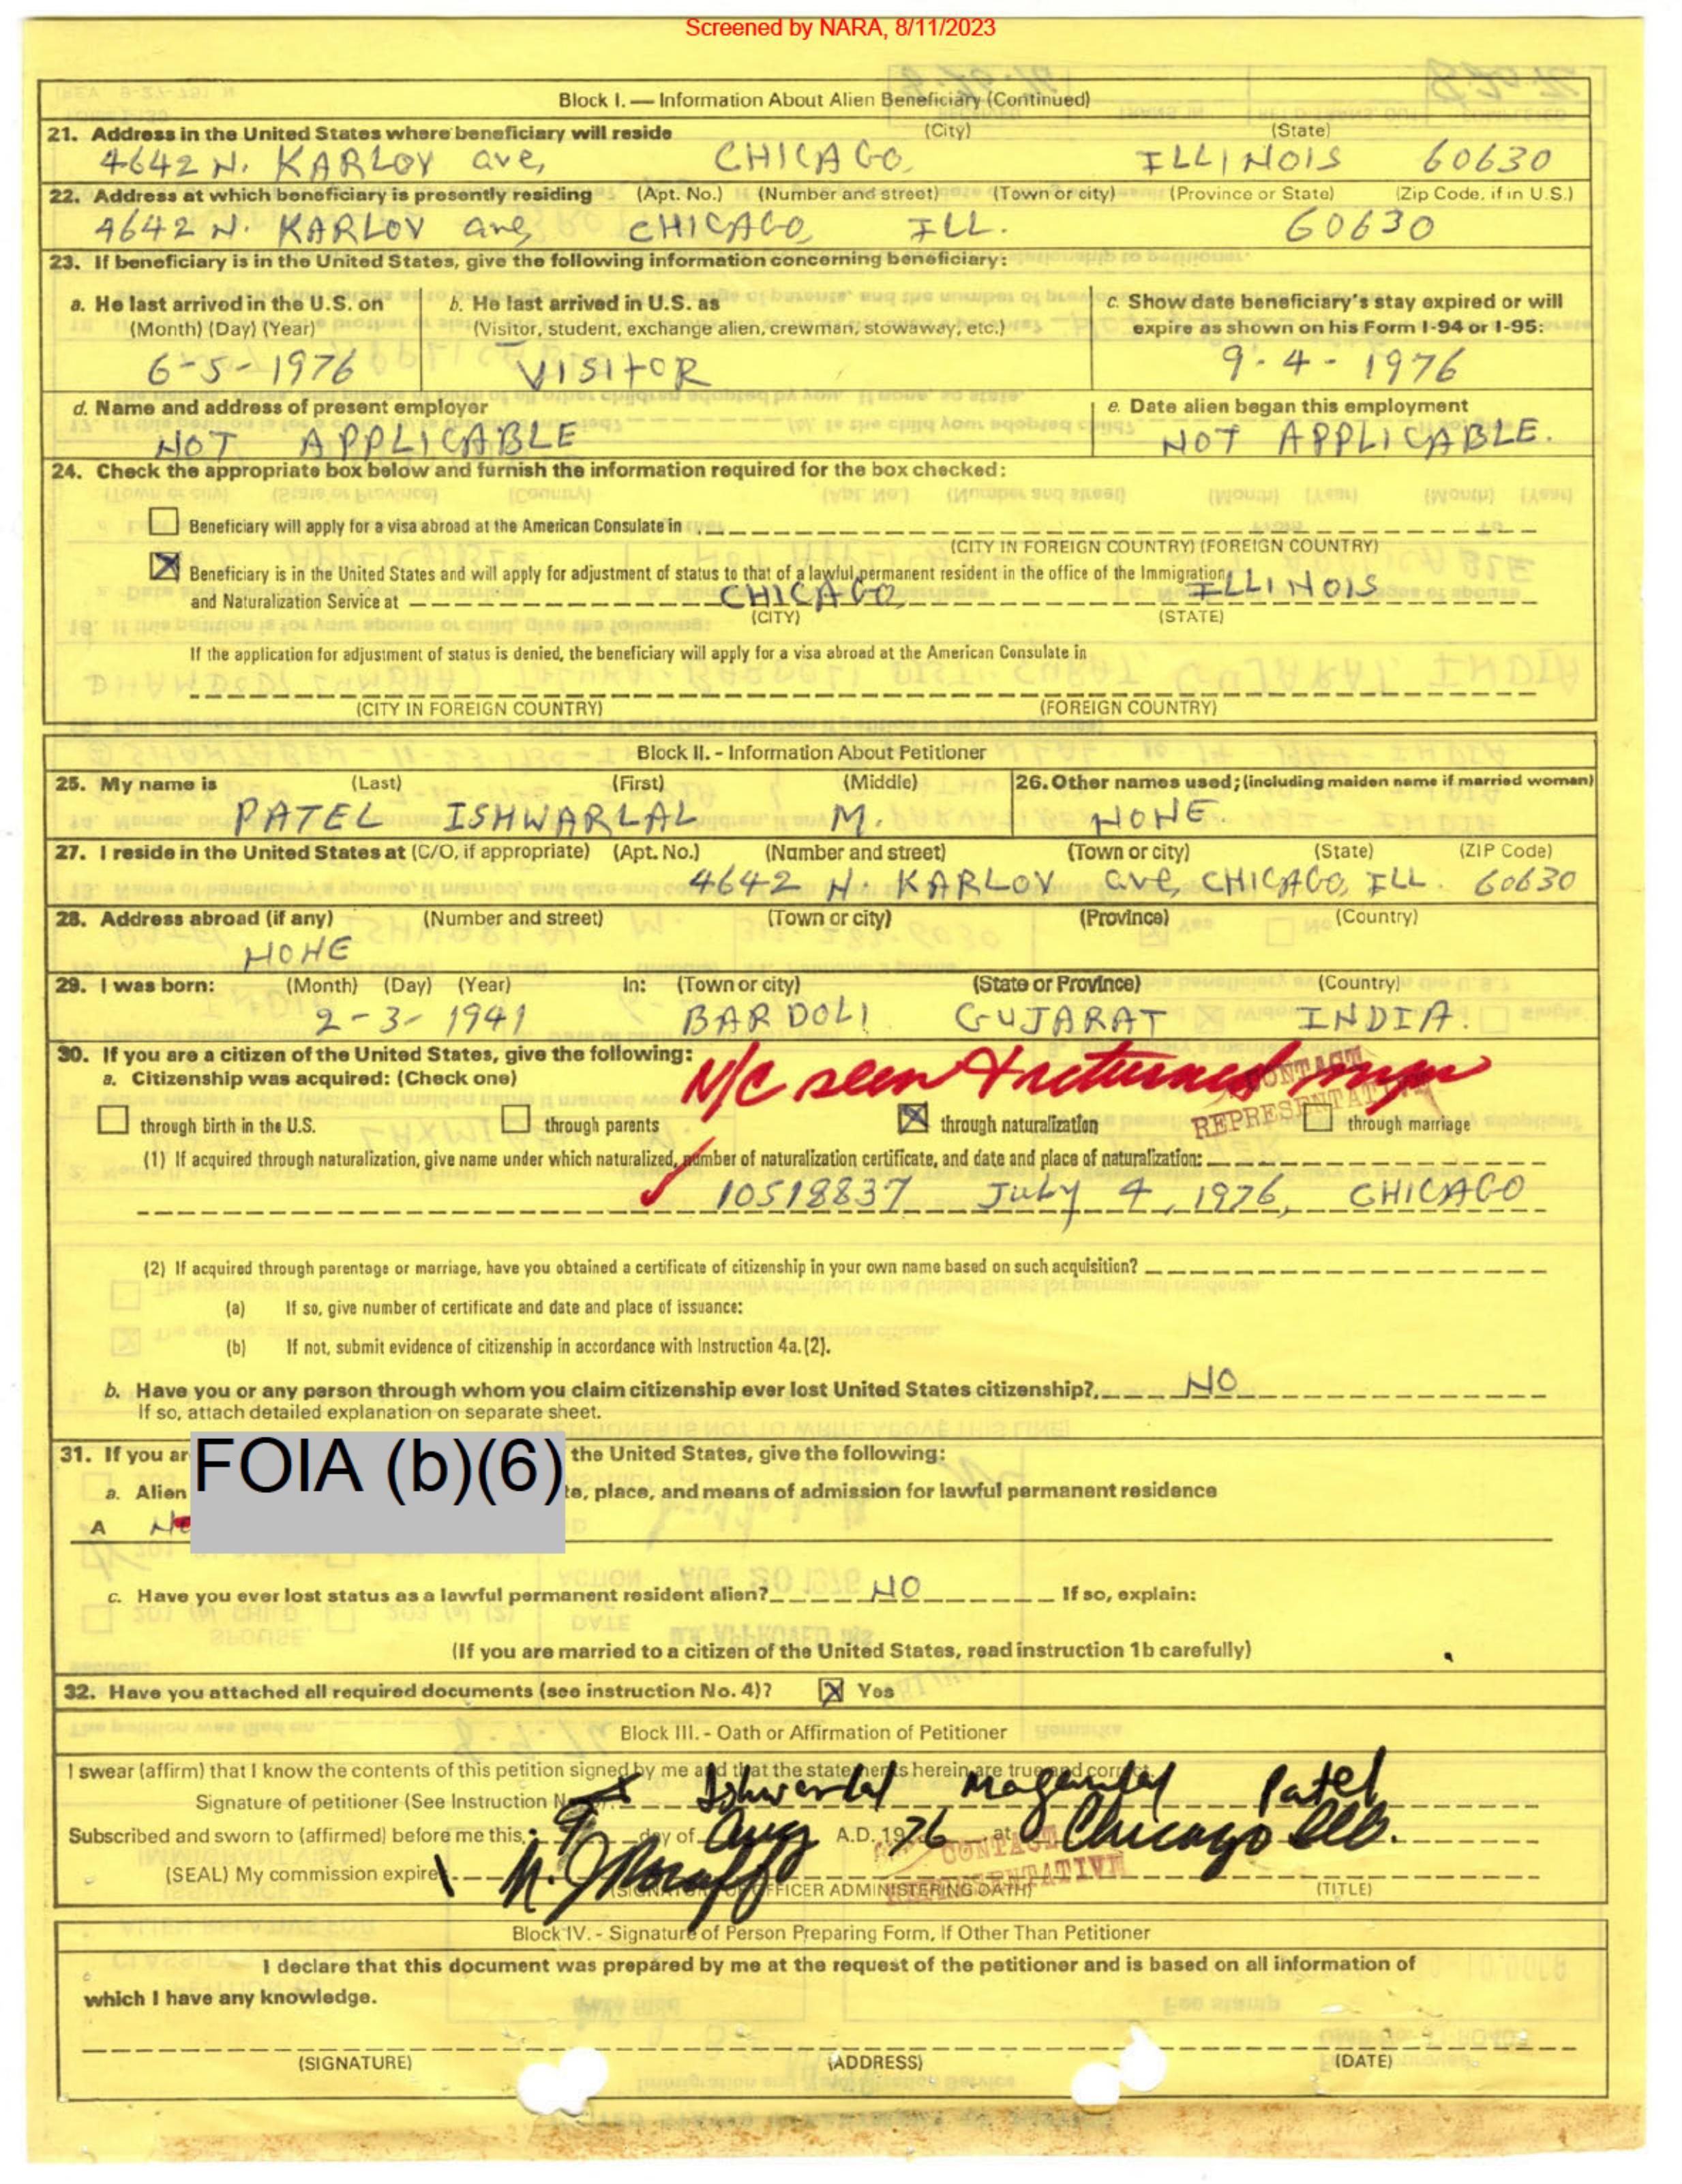 Screened by NARA, 8/11/2023
Block I. — Information About Alien Beneficiary (Continued)
21. Address in the United States where beneficiary will reside (City) (State)
4642 N. KARLOV ave, CHICAGO, ILLINOIS 60630
22. Address at which beneficiary is presently residing (Apt. No.) (Number and street) (Town or city) (Province or State) (Zip Code, if in U.S.)
4642 N. KARLOV ave, CHICAGO, ILL. 60630
23. If beneficiary is in the United States, give the following information concerning beneficiary:
a. He last arrived in the U.S. on b. He last arrived in U.S. as c. Show date beneficiary's stay expired or will
(Month) (Day) (Year) (Visitor, student, exchange alien, crewman, stowaway, etc.) expire as shown on his Form I-94 or I-95:
6-5-1976 VISITOR 9-4-1976
d. Name and address of present employer e. Date alien began this employment
NOT APPLICABLE NOT APPLICABLE.
24. Check the appropriate box below and furnish the information required for the box checked:
Beneficiary will apply for a visa abroad at the American Consulate in
(CITY IN FOREIGN COUNTRY) (FOREIGN COUNTRY)
Beneficiary is in the United States and will apply for adjustment of status to that of a lawful permanent resident in the office of the Immigration
and Naturalization Service at CHICAGO, ILLINOIS
(CITY) (STATE)
If the application for adjustment of status is denied, the beneficiary will apply for a visa abroad at the American Consulate in
(CITY IN FOREIGN COUNTRY) (FOREIGN COUNTRY)
Block II. - Information About Petitioner
25. My name is (Last) (First) (Middle) 26. Other names used; (including maiden name if married woman)
PATEL ISHWARLAL M. NONE.
27. I reside in the United States at (C/O, if appropriate) (Apt. No.) (Number and street) (Town or city) (State) (ZIP Code)
4642 N. KARLOV ave, CHICAGO, ILL. 60630
28. Address abroad (if any) (Number and street) (Town or city) (Province) (Country)
NONE
29. I was born: (Month) (Day) (Year) In: (Town or city) (State or Province) (Country)
2-3-1941 BARDOLI GUJARAT INDIA.
30. If you are a citizen of the United States, give the following:
N/C seen & returned
CONTACT REPRESENTATIVE
a. Citizenship was acquired: (Check one)
through birth in the U.S. through parents through naturalization through marriage
(1) If acquired through naturalization, give name under which naturalized, number of naturalization certificate, and date and place of naturalization:
10518837 July 4, 1976, CHICAGO
(2) If acquired through parentage or marriage, have you obtained a certificate of citizenship in your own name based on such acquisition?
(a) If so, give number of certificate and date and place of issuance:
(b) If not, submit evidence of citizenship in accordance with Instruction 4a.(2).
b. Have you or any person through whom you claim citizenship ever lost United States citizenship? NO
If so, attach detailed explanation on separate sheet.
31. If you ar FOIA (b)(6) the United States, give the following:
a. Alien te, place, and means of admission for lawful permanent residence
A
c. Have you ever lost status as a lawful permanent resident alien? NO If so, explain:
(If you are married to a citizen of the United States, read instruction 1b carefully)
32. Have you attached all required documents (see instruction No. 4)? Yes
Block III. - Oath or Affirmation of Petitioner
I swear (affirm) that I know the contents of this petition signed by me and that the statements herein are true and correct.
Signature of petitioner (See Instruction Ishwarlal Maganlal Patel
Subscribed and sworn to (affirmed) before me this 9 day of Aug A.D. 1976 at Chicago Ill.
CONTACT REPRESENTATIVE
(SEAL) My commission expires
(SIGNATURE OF OFFICER ADMINISTERING OATH) (TITLE)
Block IV. - Signature of Person Preparing Form, If Other Than Petitioner
I declare that this document was prepared by me at the request of the petitioner and is based on all information of
which I have any knowledge.
(SIGNATURE) (ADDRESS) (DATE)